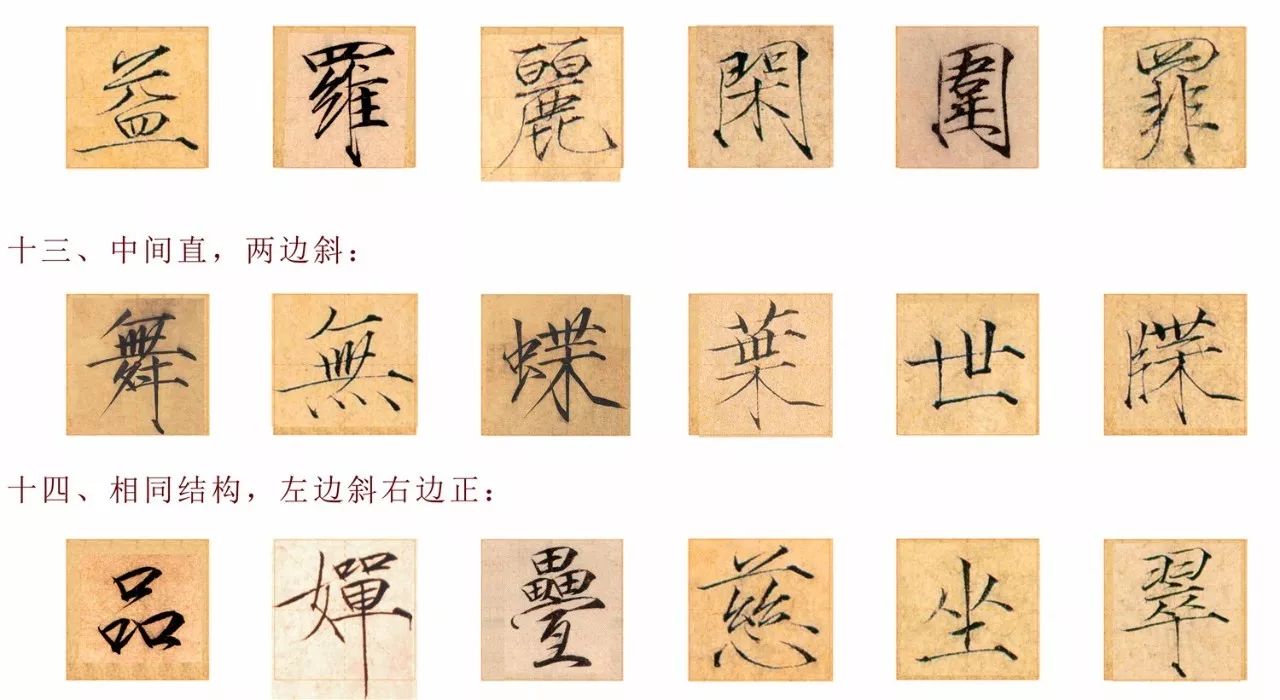 益 羅 麗 閑 圍 罪
十三、中间直，两边斜：
舞 無 蝶 葉 世 牒
十四、相同结构，左边斜右边正：
品 嬋 疊 慈 坐 翠